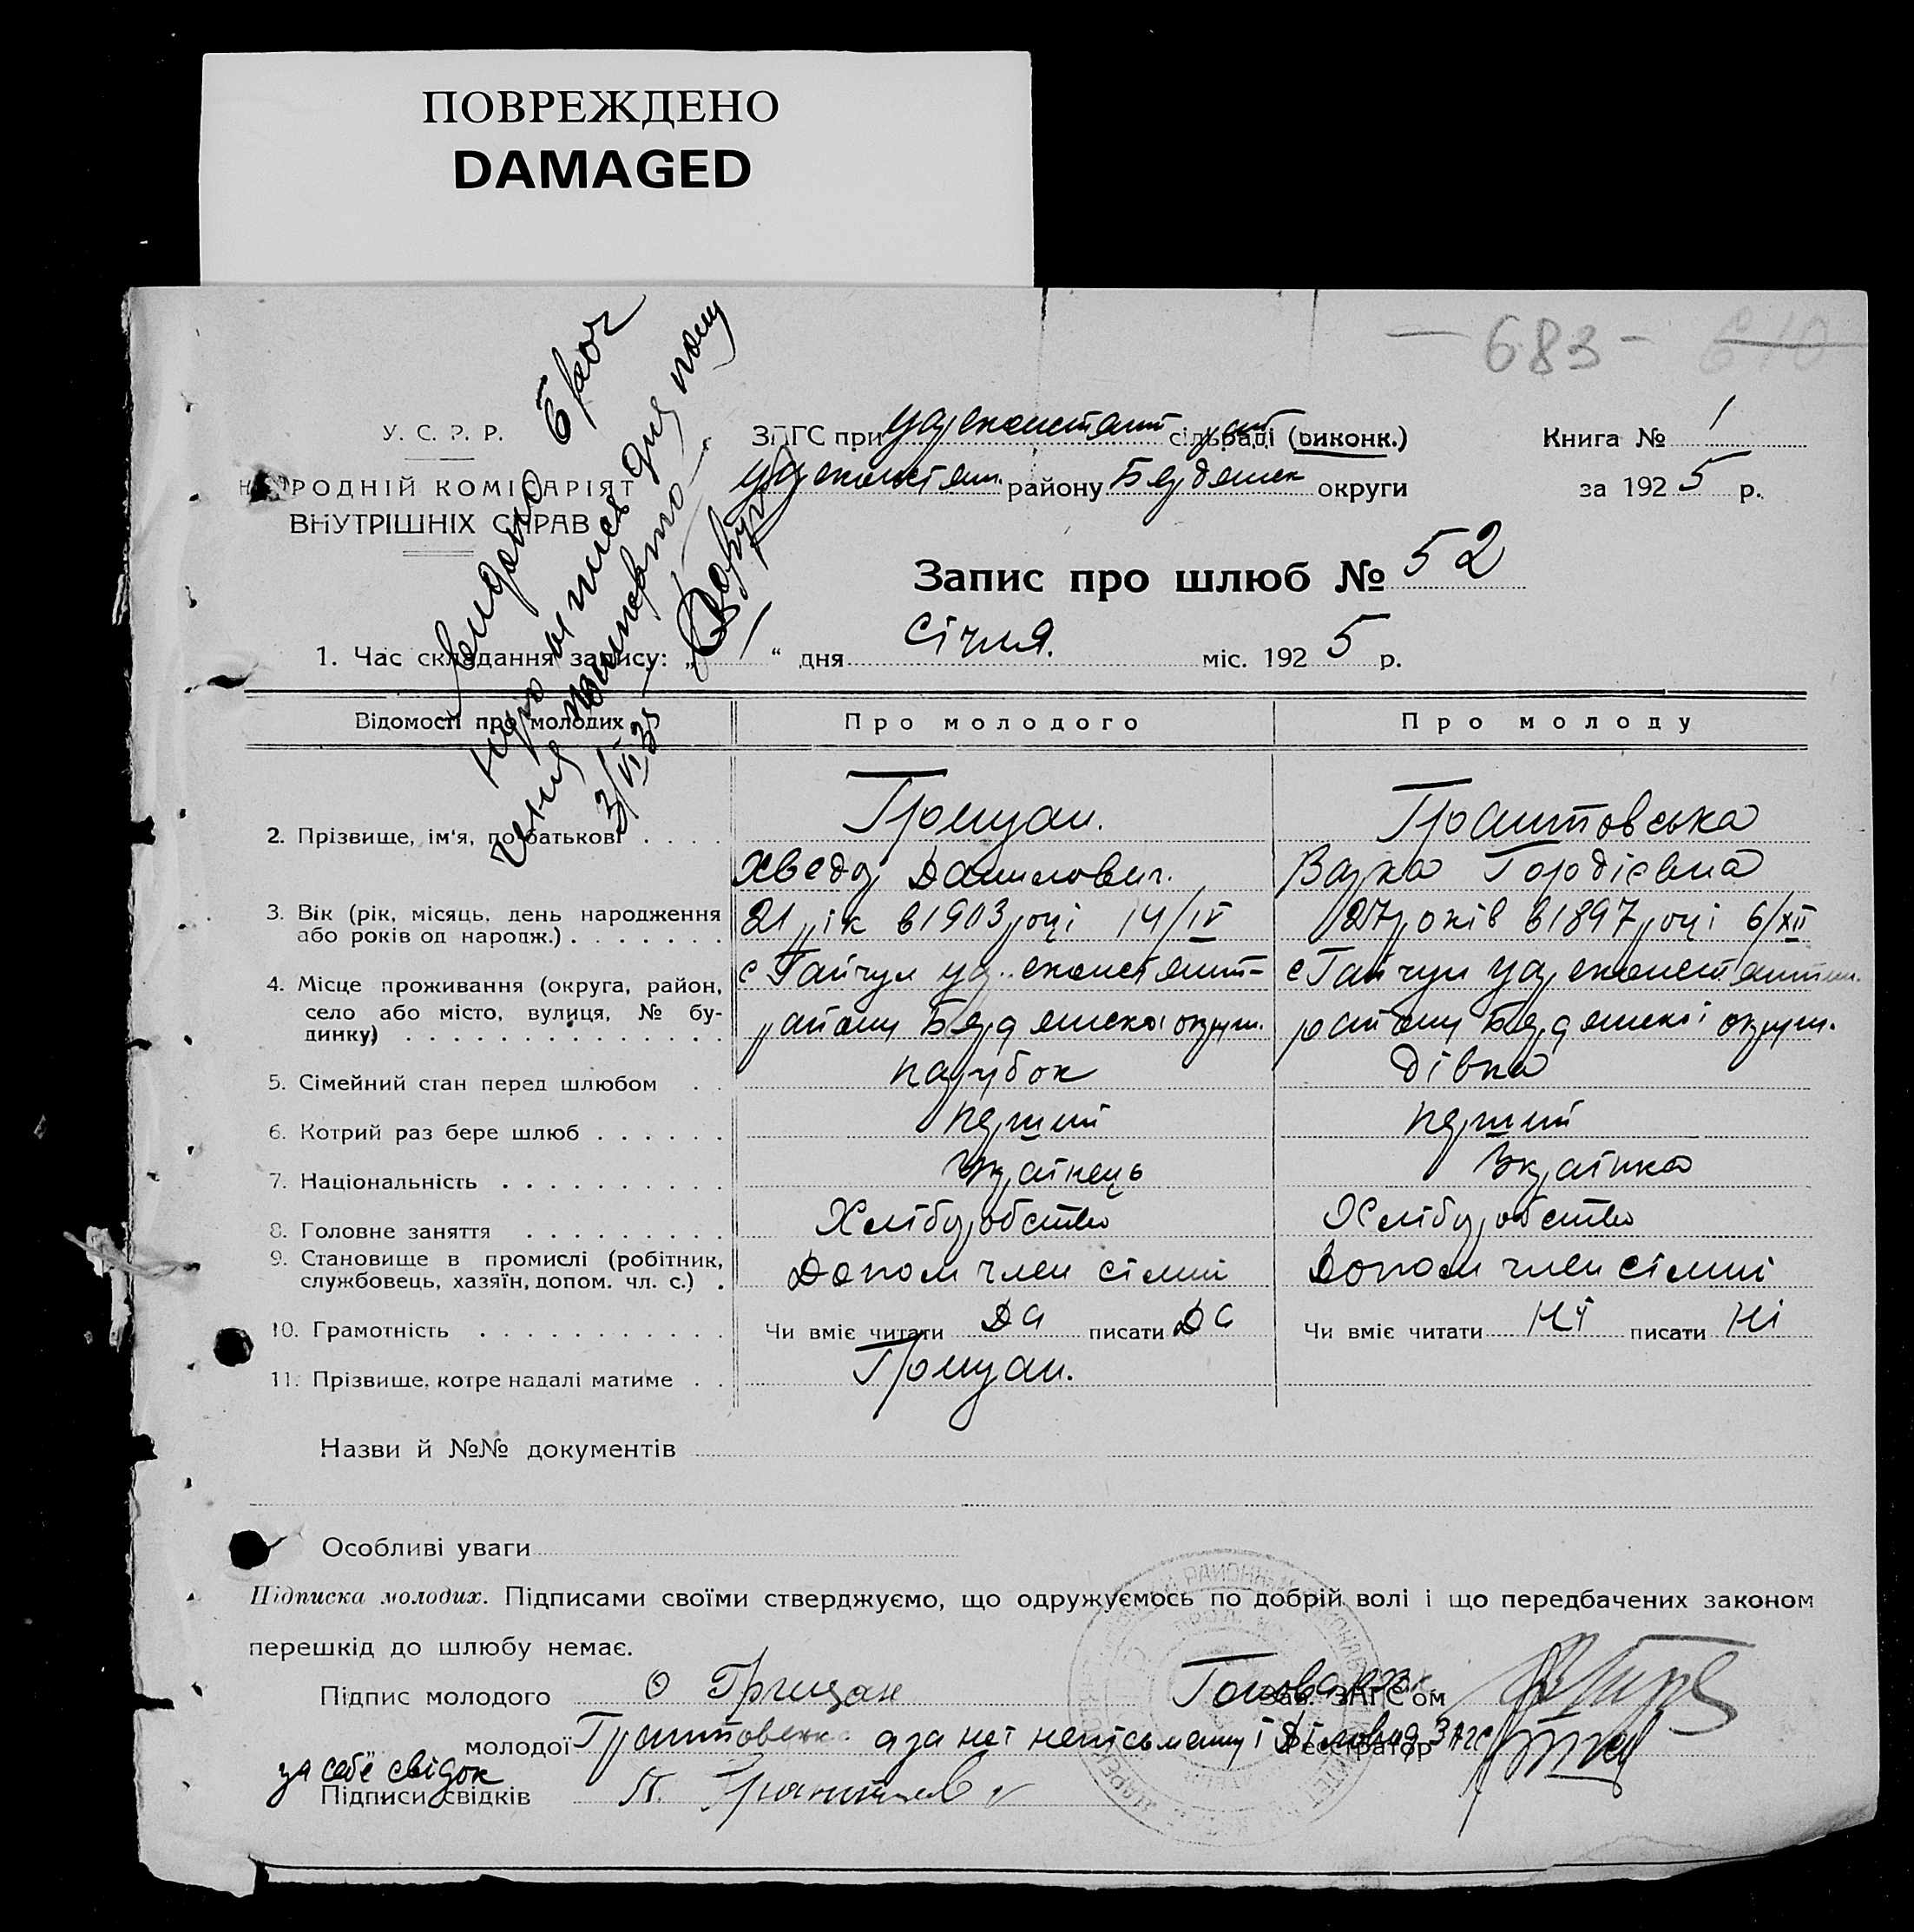 ПОВРЕЖДЕНО
DAMAGED
— 683 — 610
У. С. Р. Р.
НАРОДНІЙ КОМІСАРІЯТ
ВНУТРІШНІХ СПРАВ
ЗАГС при сільраді (виконк.)
району Бердянск округи
Книга № 1
за 1925 р.
Запис про шлюб № 52
1. Час складання запису: „ 1 “ дня Січня. міс. 1925 р.
Видано брач
3/VI 35
Відомості про молодих
Про молодого
Про молоду
2. Прізвище, ім'я, по батькові . . . .
Грицан.
Хведор Данилович.
Варка Гордієвна
3. Вік (рік, місяць, день народження
або років од народж.) . . . . . . .
21 рік в 1903 році 14/IV
27 років в 1897 році 6/XII
4. Місце проживання (округа, район,
село або місто, вулиця, № бу-
динку) . . . . . . . . . . . . . .
с Гайчул
району Бердянської округи.
с Гайчул
району Бердянскої округи.
5. Сімейний стан перед шлюбом . .
парубок
дівка
6. Котрий раз бере шлюб . . . . . .
перший
перший
7. Національність . . . . . . . . . .
Українець
Українка
8. Головне заняття . . . . . . . . .
Хліборобство
Хліборобство
9. Становище в промислі (робітник,
службовець, хазяїн, допом. чл. с.) .
Допом член сімьі
Допом член сімьі
10. Грамотність . . . . . . . . . . .
Чи вміє читати Да писати Да
Чи вміє читати Ні писати Ні
11. Прізвище, котре надалі матиме . .
Грицан.
Назви й №№ документів
Особливі уваги
Підписка молодих. Підписами своїми стверджуємо, що одружуємось по добрій волі і що передбачених законом
перешкід до шлюбу немає.
Підпис молодого Ѳ Грицан
Зав. ЗАГС'ом
молодої а за неї неписьменну і
Реєстратор
за себе свідок
Підписи свідків